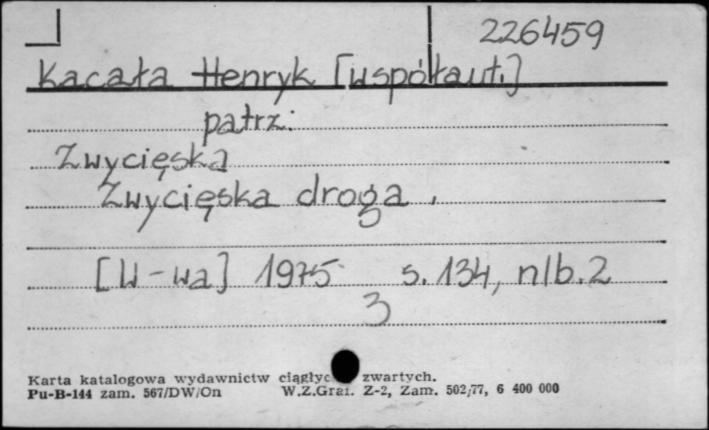 226459
Kacała Henryk [współaut.]
patrz:
Zwycięska
Zwycięska droga.
[W-wa] 1975 s. 134, nlb. 2
3
Karta katalogowa wydawnictw ciągłyc zwartych.
Pu-B-144 zam. 567/DW/On W.Z.Graf. Z-2, Zam. 502/77, 6 400 000